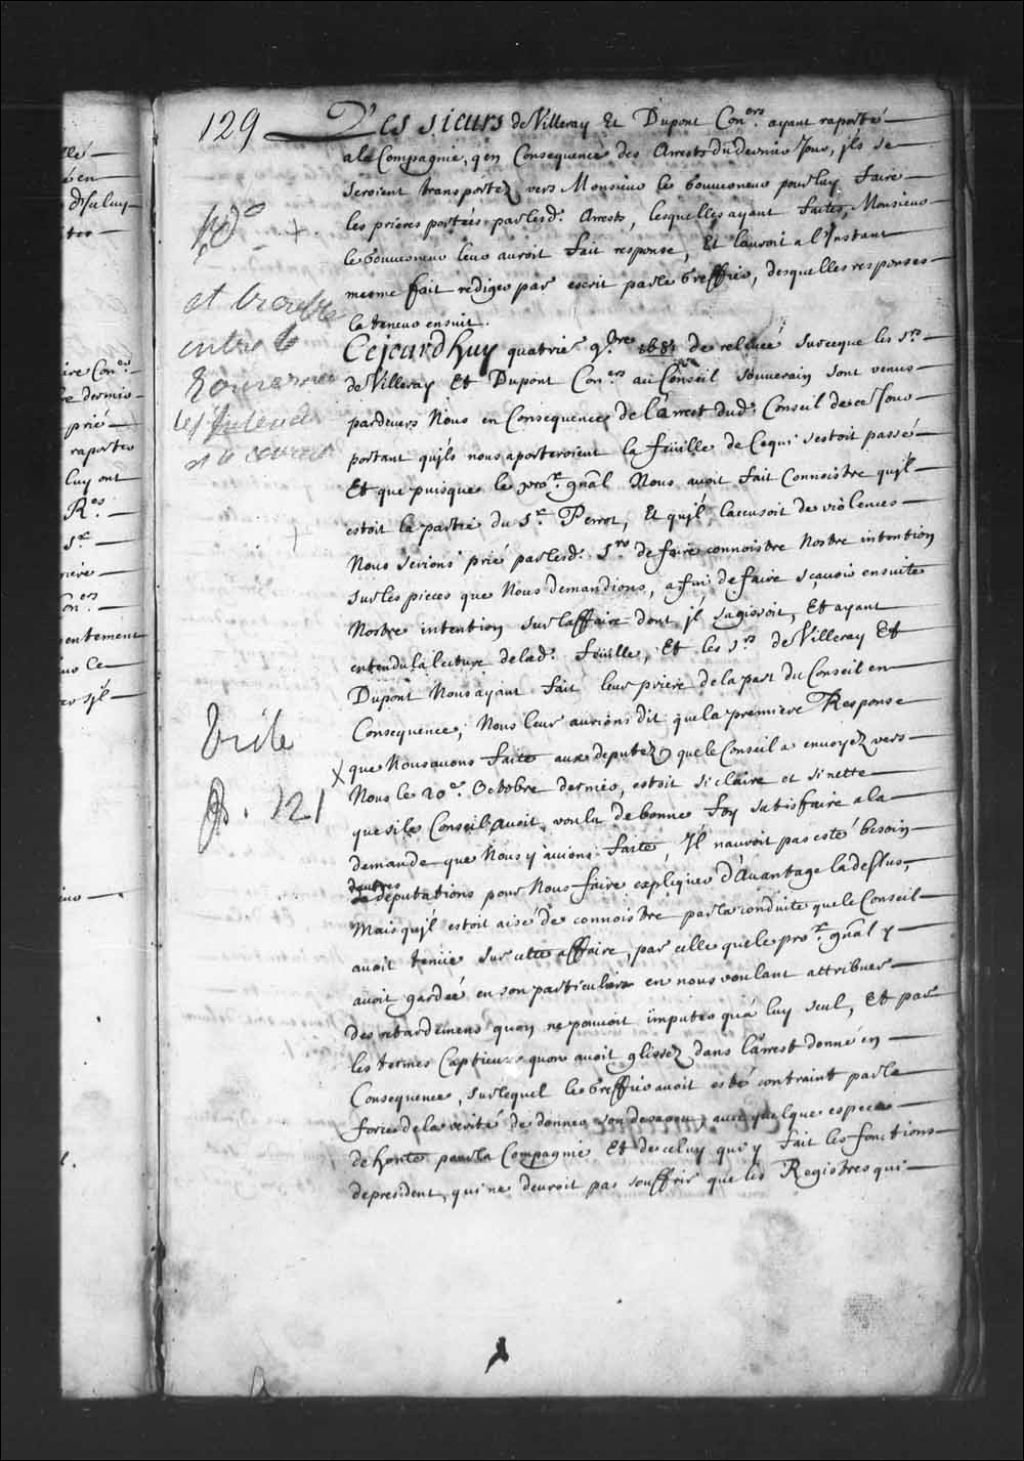 129
Les sieurs de Villeray Et Dupont Con.ers ayant raporté
a la Compagnie, q en Consequence des Arrests du dernier Jour, jls se
seroient transportez vers Monsieur le Gouuerneur pour luy faire
les prieres portées par lesd. Arrests, lesquelles ayant faites, Monsieur
le Gouuerneur leur auroit fait response, Et lauroit a l'Instant
mesme fait rediger par escrit par le Greffier, desquelles responses
la teneur ensuit.
Cejourdhuy quatrie.e 9.bre 1681 de releuée Surceque les s.rs
de Villeray Et Dupont Con.ers au Conseil Souuerain sont venus
pardeuers Nous en Consequence de l'arrest dud. Conseil de ce Jour
portant qujls nous aporteroient la feüille de Cequi sestoit passé
Et que puisque le pro.r gñal Nous auoit fait Connoistre qujl
estoit la partie du S.r Perrot, Et qujl laccusoit de violences
Nous serions prié par lesd. S.rs de faire connoistre Nostre intention
sur les pieces que Nous demandions, afin de faire sçauoir ensuite
Nostre intention sur laffaire dont jl sagissoit, Et ayant
entendu la lecture de lad. feüille, Et les s.rs de Villeray Et
Dupont Nous ayant fait leur priere de la part du Conseil en
Consequence, Nous leur aurions dit que la premiere Response
que Nous auons faite aux deputez que le Conseil a enuoyez vers
Nous le 20.e Octobre dernier, estoit si claire et si nette
que si le Conseil auoit voulu de bonne foy satisfaire a la
demande que Nous y auions faite, Jl nauroit pas esté besoin
dautres
deputations pour Nous faire expliquer d'Auantage ladessus,
Mais qujl estoit aisé de connoistre par la conduite que le Conseil
auoit tenüe sur cette affaire, par celle que le pro.r gñal y
auoit gardée en son particulier en nous voulant attribuer
des retardemens quon ne pouuoit imputer qua luy seul, Et par
les termes Captieux quon auoit glissez dans larrest donné en
Consequence, sur lequel le Greffier auoit esté contraint par la
force de la verité de donner son desaueu, auec quelque espece
de honte pour la Compagnie Et de celuy qui y fait les fonctions
de president, qui ne deuroit pas souffrir que les Registres qui
et
entre le
Gouverneur
l'Intend.
et le
Vide
p. 121